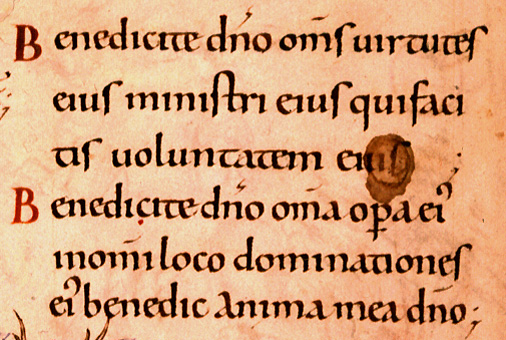 Benedicite dño om̃s uirtutes
eius ministri eius qui faci
tis uoluntatem eius ;
Benedicite dño om̃a op̱a ei᾿
in om̃i loco dominationes
ei᾿ benedic anima mea dño;